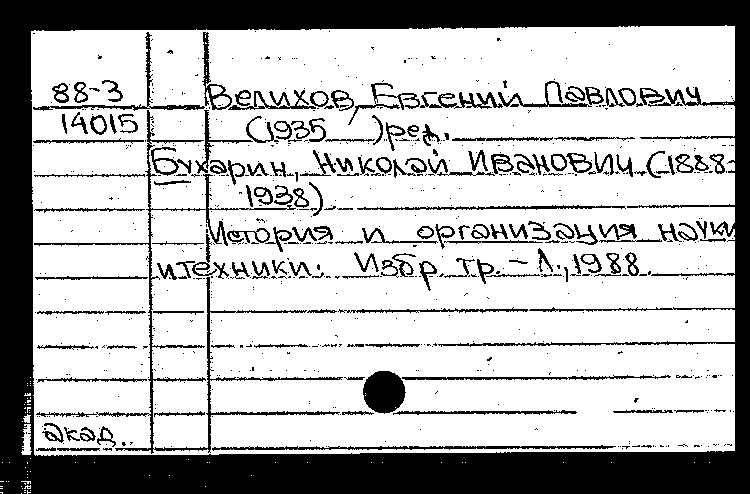 88-3 Велихов, Евгений Павлович
14015 (1935 )ред.
Бухарин, Николай Иванович (1888-
1938)
История и организация науки
и техники. Избр. тр. – Л., 1988.
акад.